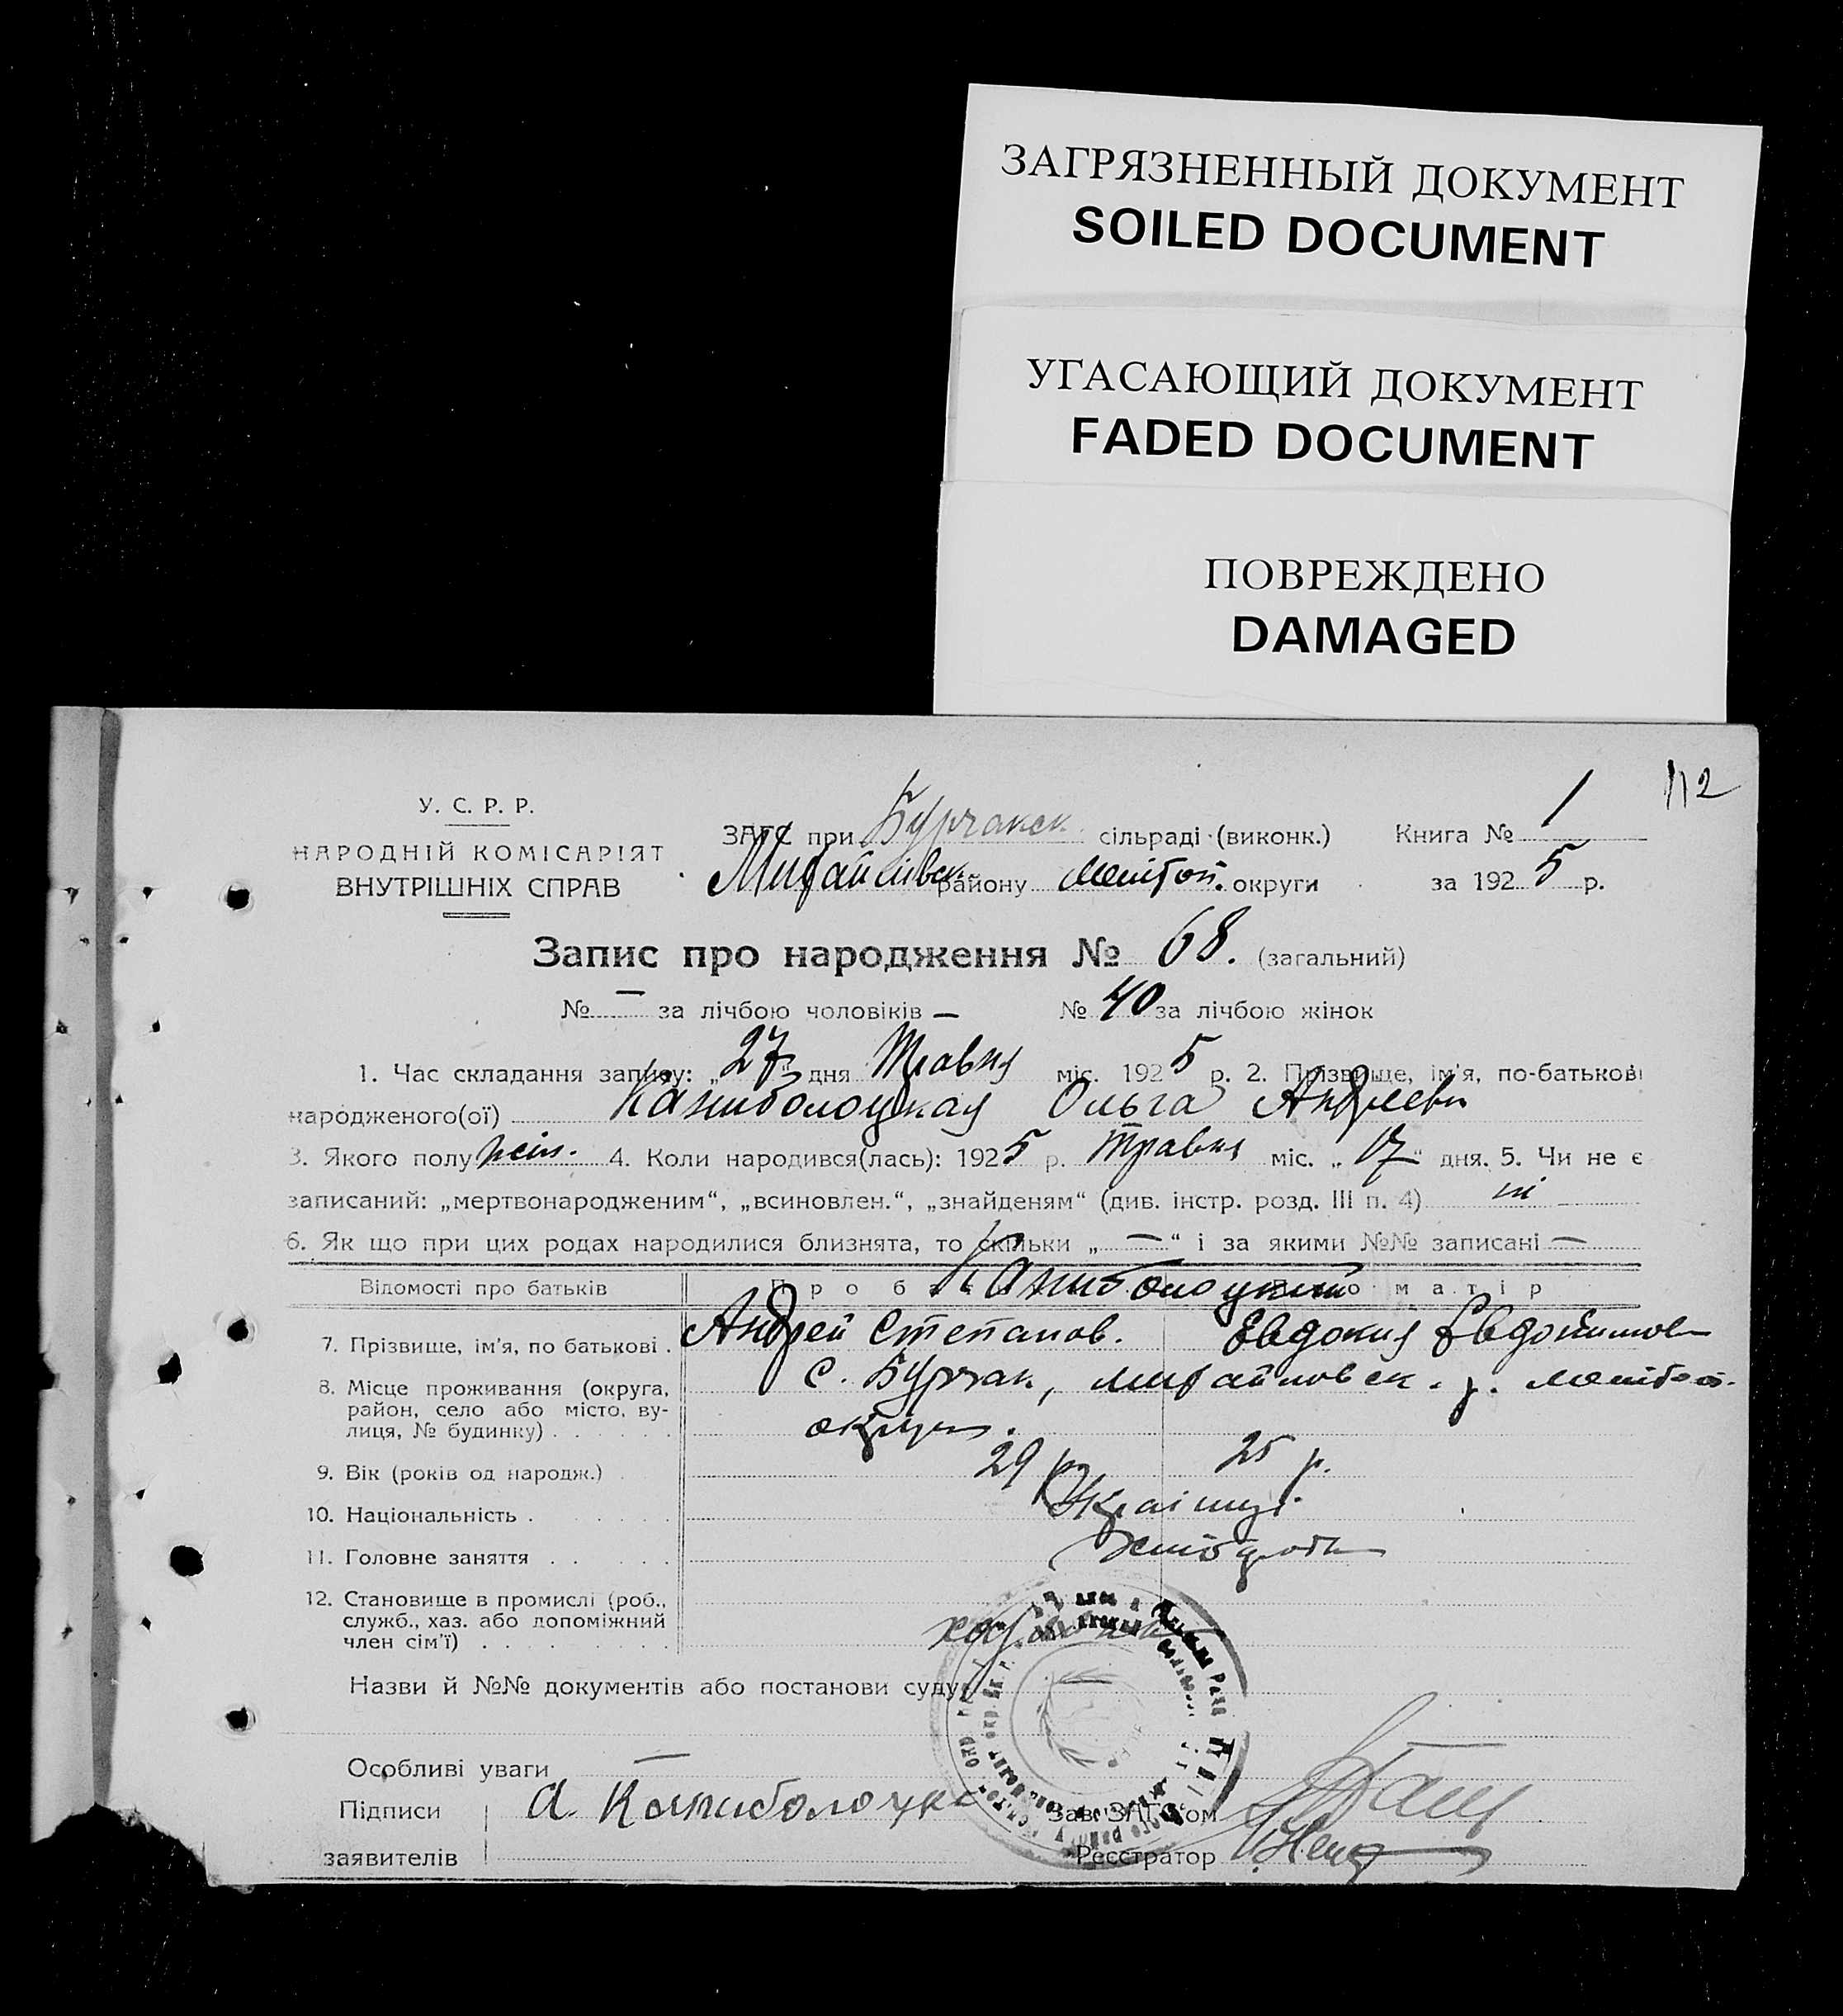 ЗАГРЯЗНЕННЫЙ ДОКУМЕНТ
SOILED DOCUMENT
УГАСАЮЩИЙ ДОКУМЕНТ
FADED DOCUMENT
ПОВРЕЖДЕНО
DAMAGED
112
У. С. Р. Р.
НАРОДНІЙ КОМІСАРІЯТ
ВНУТРІШНІХ СПРАВ
ЗАГС при Бурчакск. сільраді (виконк.) Книга № 1
Михайлівск. району Мелітоп. округи за 1925 р.
Запис про народження № 68. (загальний)
№ — за лічбою чоловіків — № 40 за лічбою жінок
1. Час складання запису: „27“ дня Травня міс. 1925 р. 2. Прізвище, ім'я, по-батькові
народженого(ої) Каниболоцкая Ольга Андреевн
3. Якого полу жін. 4. Коли народився(лась): 1925 р. Травня міс. „17“ дня. 5. Чи не є
записаний: „мертвонародженим“, „всиновлен.“, „знайденям“ (див. інстр. розд. III п. 4) ні
6. Як що при цих родах народилися близнята, то скільки „—“ і за якими №№ записані —
Відомості про батьків Про б матір
Каниболоцкий
7. Прізвище, ім'я, по батькові . Андрей Степанов. Евдокия Евдокимов
8. Місце проживання (округа, район, село або місто, вулиця, № будинку) с. Бурчак, Михайловск. р. Мелітоп. округи.
9. Вік (років од народж.) 29 р. 25 р.
10. Національність . Українці.
11. Головне заняття Хлібороби
12. Становище в промислі (роб., служб., хаз. або допоміжний член сім'ї)
Назви й №№ документів або постанови суду
Особливі уваги —
Підписи А. Каниболоцк Зав. ЗАГС'ом
заявителів Реєстратор